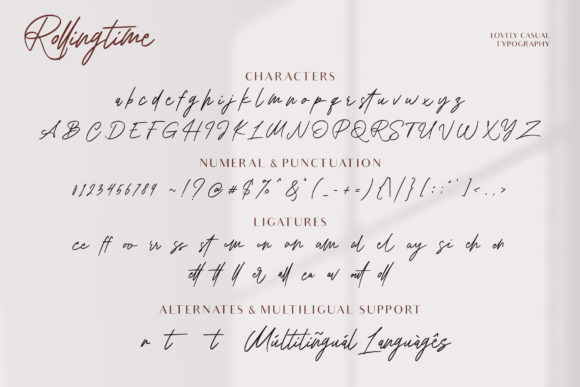 Rollingtime
LOVELY CASUAL
TYPOGRAPHY
CHARACTERS
a b c d e f g h i j k l m n o p q r s t u v w x y z
A B C D E F G H I J K L M N O P Q R S T U V W X Y Z
NUMERAL & PUNCTUATION
0 1 2 3 4 5 6 7 8 9 ~ ! ? @ # $ % ^ & * ( _ - + = ) { \ | / } [ : ; " ' ] < . , >
LIGATURES
ee ff oo rr ss st um on an am al el ay si ch en
ett tt ll er all ea av out oll
ALTERNATES & MULTILIGUAL SUPPORT
r t t Múltitiñguál Languàgês